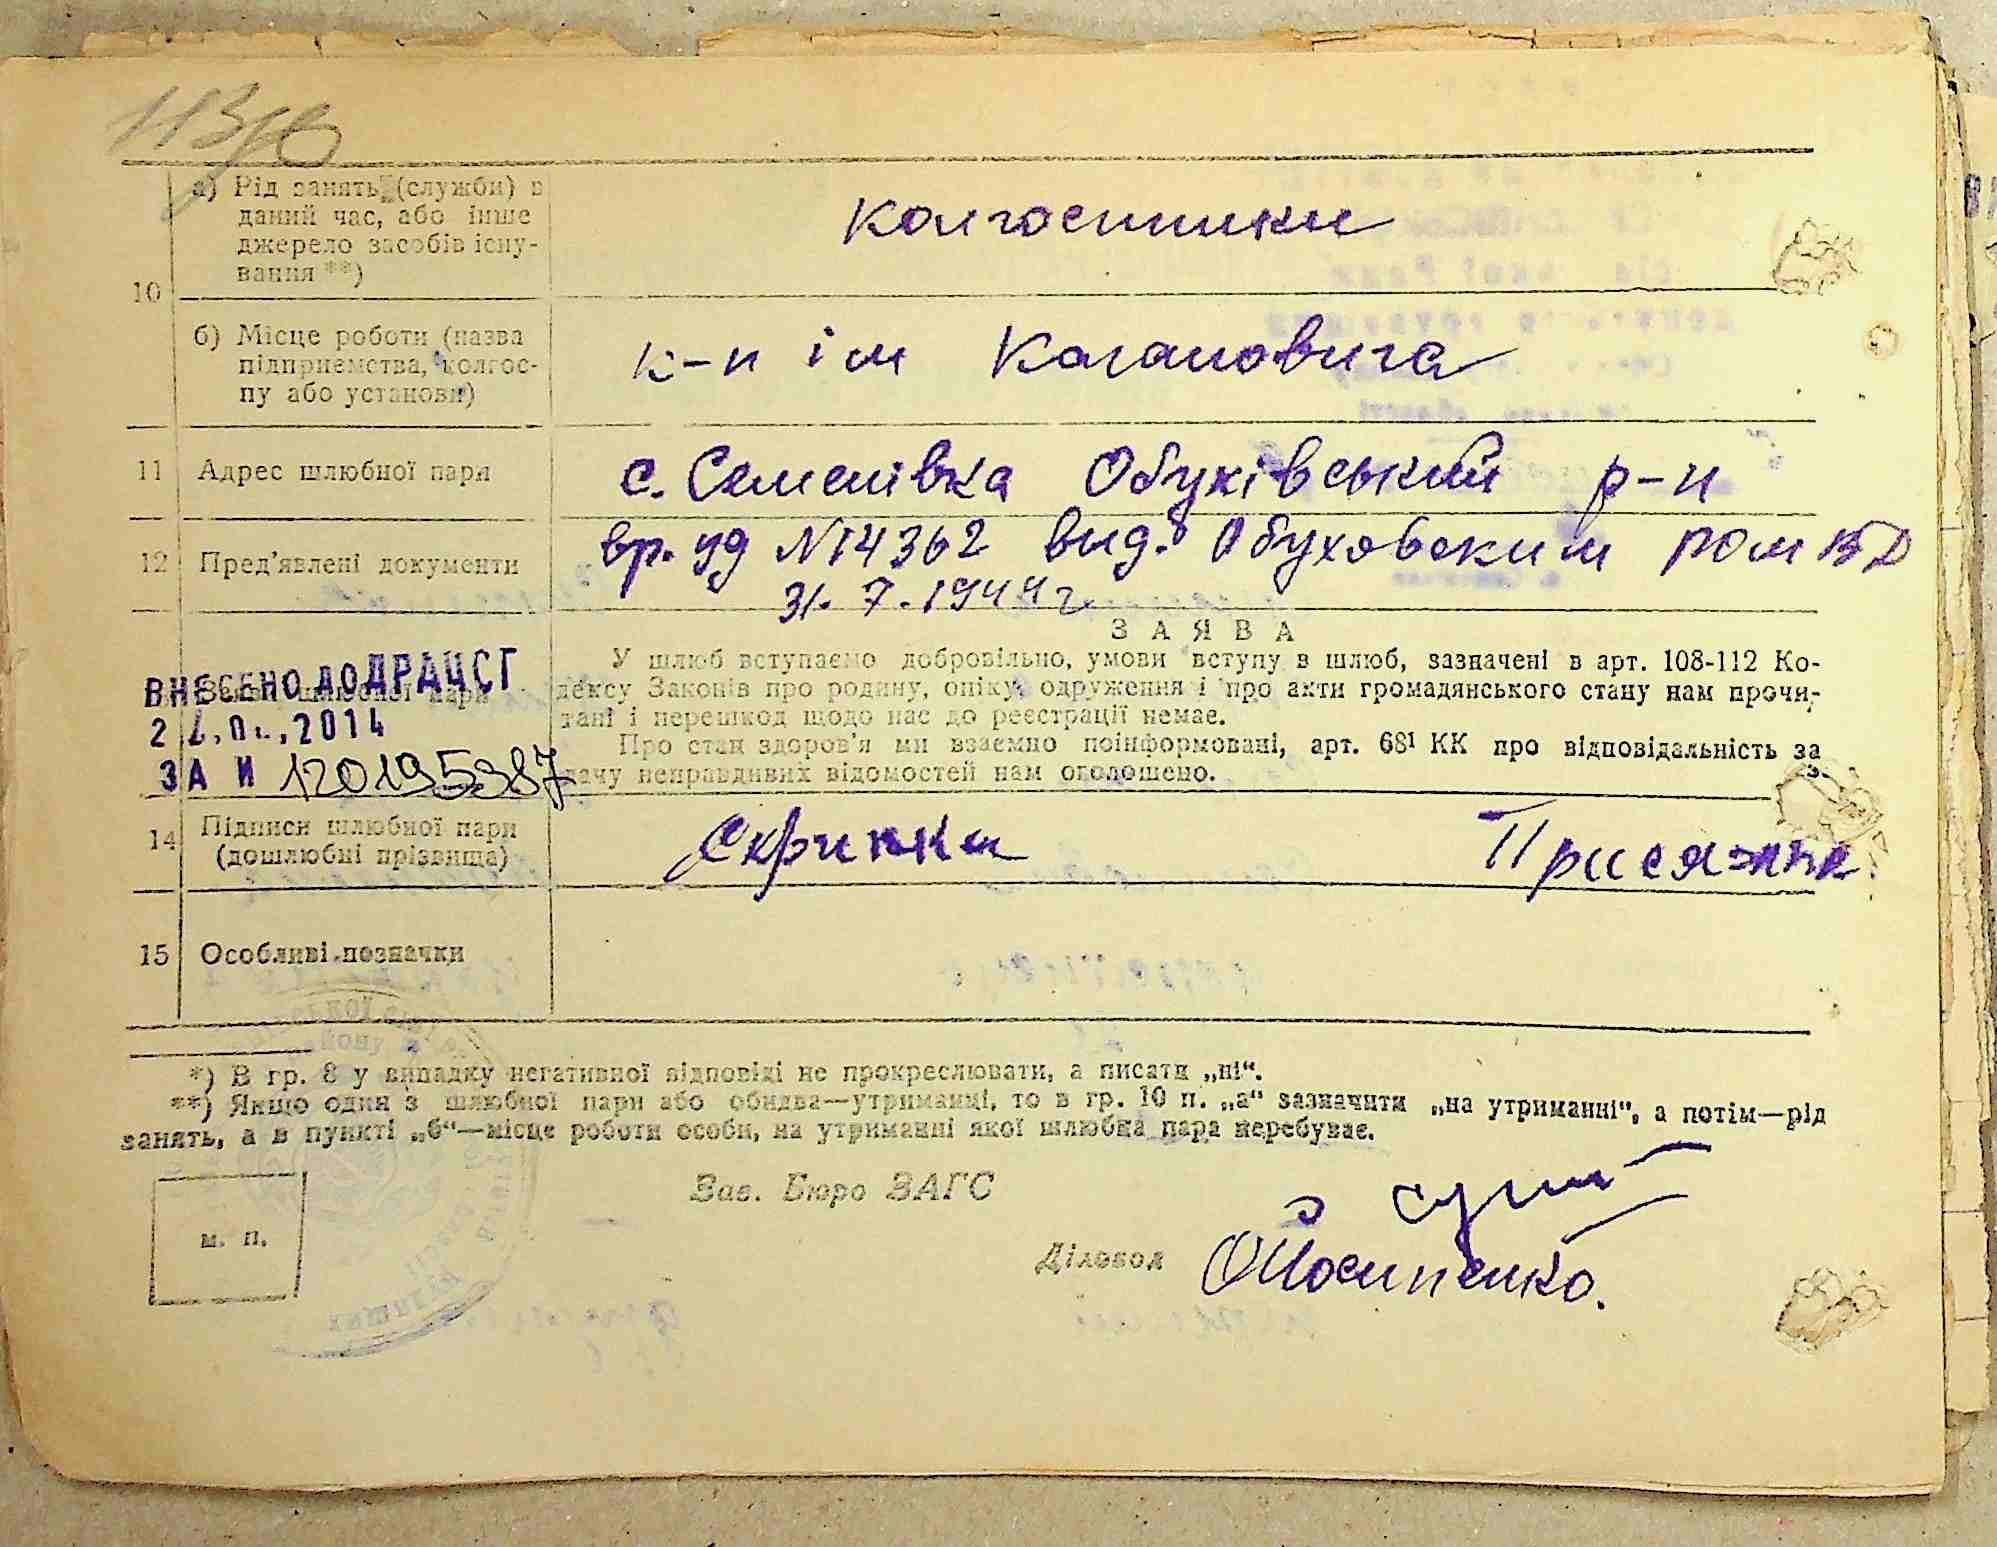 а) Рід занять (служби) в
даний час, або інше
джерело засобів існу-
вання **)
колгоспники
10
б) Місце роботи (назва
підприємства, колгос-
пу або установи)
к-п ім Кагановича
11 Адрес шлюбної пари с. Семенівка Обухівський р-н
12 Пред'явлені документи вр. уд №14362 выд. Обуховским
31. 7. 1944 г
ЗАЯВА
У шлюб вступаємо добровільно, умови вступу в шлюб, зазначені в арт. 108-112 Ко-
дексу Законів про родину, опіку, одруження і про акти громадянського стану нам прочи-
тані і перешкод щодо нас до реєстрації немає.
Про стан здоров'я ми взаємно поінформовані, арт. 68¹ КК про відповідальність за
дачу неправдивих відомостей нам оголошено.
шлюбної пари
ВНЕСЕНО ДО ДРАЦСГ
2014
ЗА № 120195387
14 Підписи шлюбної пари
(дошлюбні прізвища)
Скрипка Присяжна
15 Особливі позначки
*) В гр. 8 у випадку негативної відповіді не прокреслювати, а писати „ні“.
**) Якщо один з шлюбної пари або обидва—утриманці, то в гр. 10 п. „а“ зазначити „на утриманні“, а потім—рід
занять, а в пункті „б“—місце роботи особи, на утриманні якої шлюбна пара перебуває.
м. п.
Зав. Бюро ЗАГС
Діловод Йосипенко.